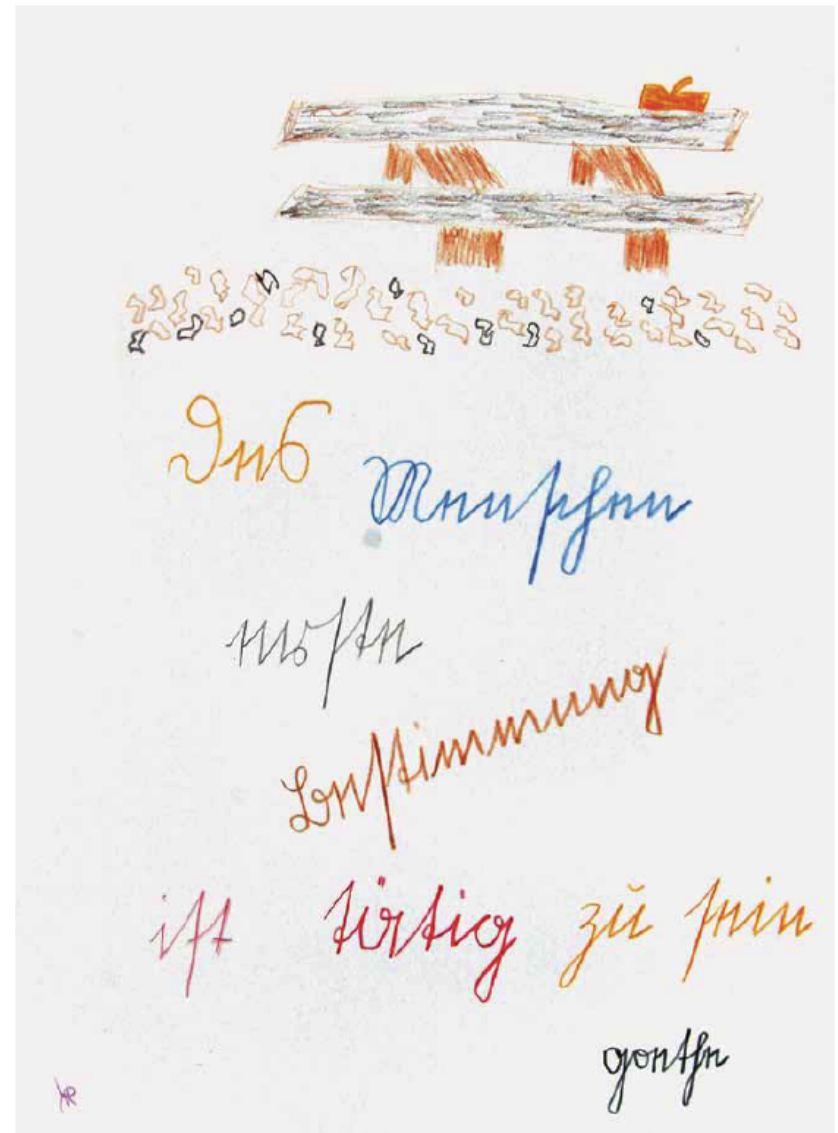 Des
Menschen
erste
Bestimmung
ist tätig zu sein
goethe
HR